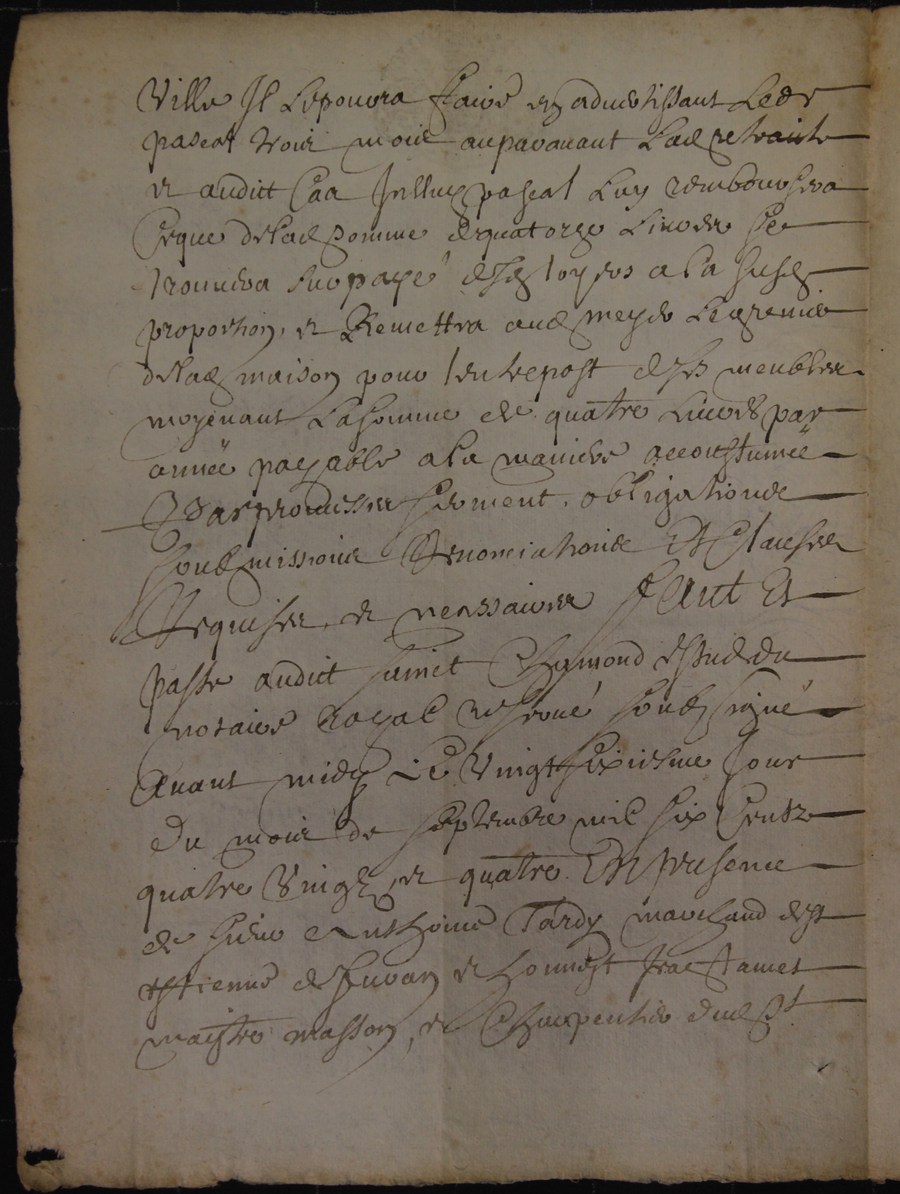 Ville Il Le pourra faire en advertissant Led sr
pascal trois mois auparavant Lad retraicte
et audict Cas Icelluy pascal Luy rembourssera
ce que de lad somme de quatorze Livres se
trouvera surpayé desd loyers a la susd
proportion, et Remettra aud meyer Le grenier
de lad maison pour l'entrepost de ses meubles
moyenant La somme de quatre Livres par
année payable a la maniere accoustumée
Par promesses serment, obligations
soubmissions Renonciations Et Clauses
Requises, et necessaires faict Et
passé audict sainct Chamond estude du
notaire Royal reservé soubsigné
Avant midy Le Vingt sixiesme Jour
du mois de septembre mil six Centz
quatre Vingtz et quatre En presence
de sieur Anthoine Tardy marchand de st
estienne de furan et honnest Jean
maistre masson, et Charpentier dud St